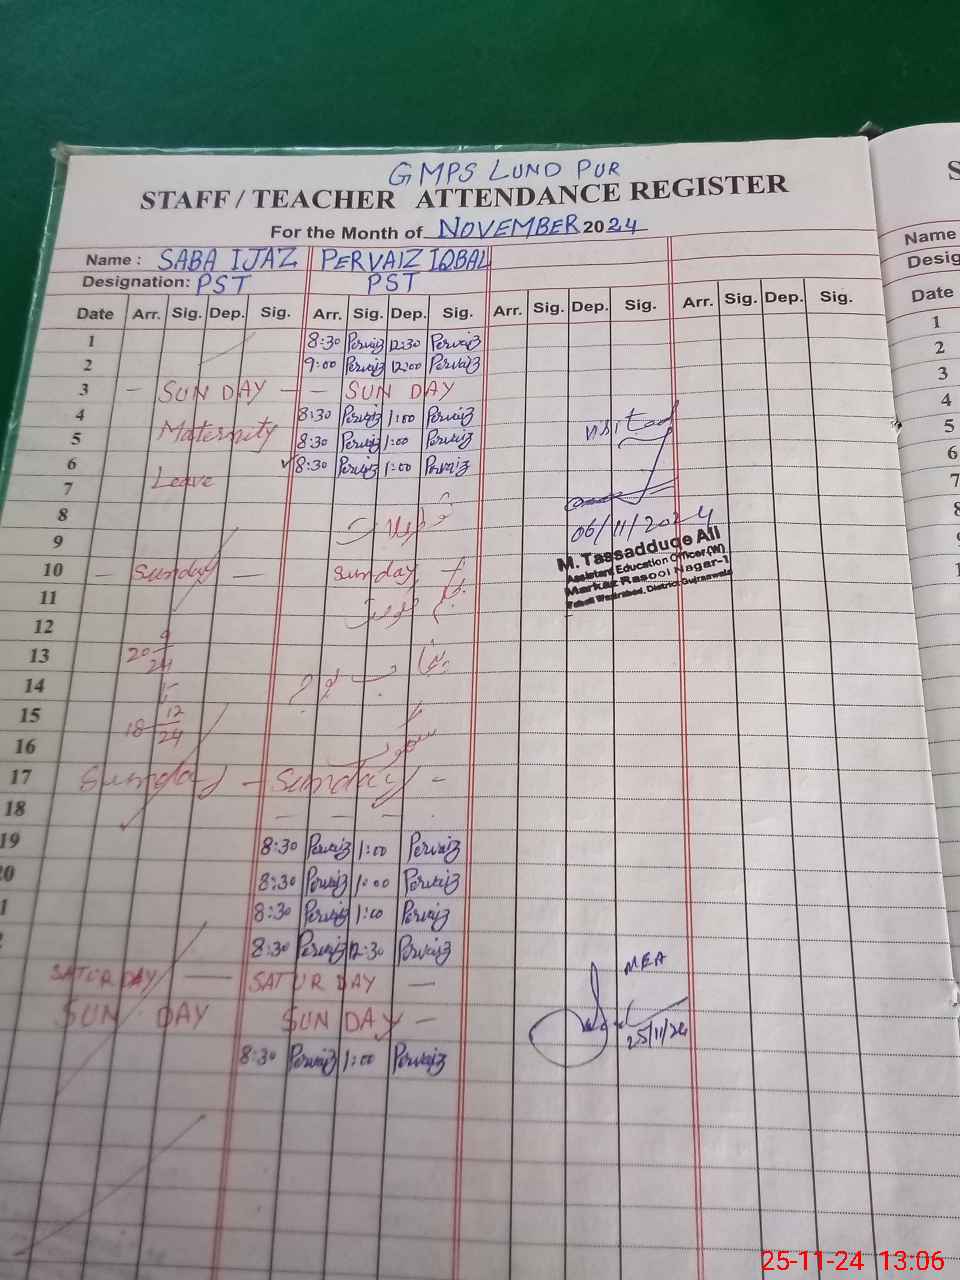 GMPS LUND PUR
STAFF / TEACHER ATTENDANCE REGISTER
For the Month of NOVEMBER 2024
Name : SABA IJAZ PERVAIZ IQBAL
Designation: PST PST
Date Arr. Sig. Dep. Sig. Arr. Sig. Dep. Sig. Arr. Sig. Dep. Sig. Arr. Sig. Dep. Sig.
1 8:30 Pervaiz 12:30 Pervaiz
2 9:00 Pervaiz 12:00 Pervaiz
3 - SUN DAY - - SUN DAY
4 8:30 Pervaiz 1:00 Pervaiz
Maternity visited
5 8:30 Pervaiz 1:00 Pervaiz
6 8:30 Pervaiz 1:00 Pervaiz
7 Leave
8
06/11/2024
9
M. Tassadduqe Ali
Assistant Education Officer (W)
Markaz Rasool Nagar-1
Tehsil Wazirabad, District Gujranwala
10 - Sunday - Sunday
11
12
13 20-9/24
14
15 18-12/24
16
17 Sunday - Sunday -
18 - - -
19 8:30 Pervaiz 1:00 Pervaiz
0 8:30 Pervaiz 1:00 Pervaiz
1 8:30 Pervaiz 1:00 Pervaiz
8:30 Pervaiz 12:30 Pervaiz
SATUR DAY - SATUR DAY -
MEA
SUN DAY SUN DAY -
25/11/24
8:30 Pervaiz 1:00 Pervaiz
S
Name
Desig
Date
1
2
3
4
5
6
7
8
25-11-24 13:06